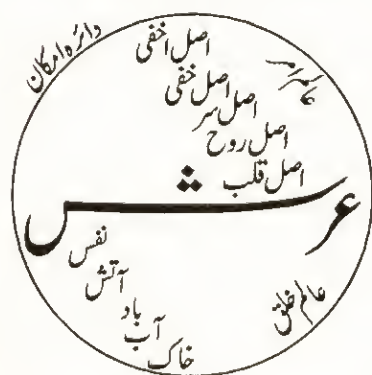 دائرہ امکان
اصل اخفی
اصل خفی
اصل سر
اصل روح
اصل قلب
عالم امر
عرش
نفس
آتش
باد
آب
خاک
عالم خلق